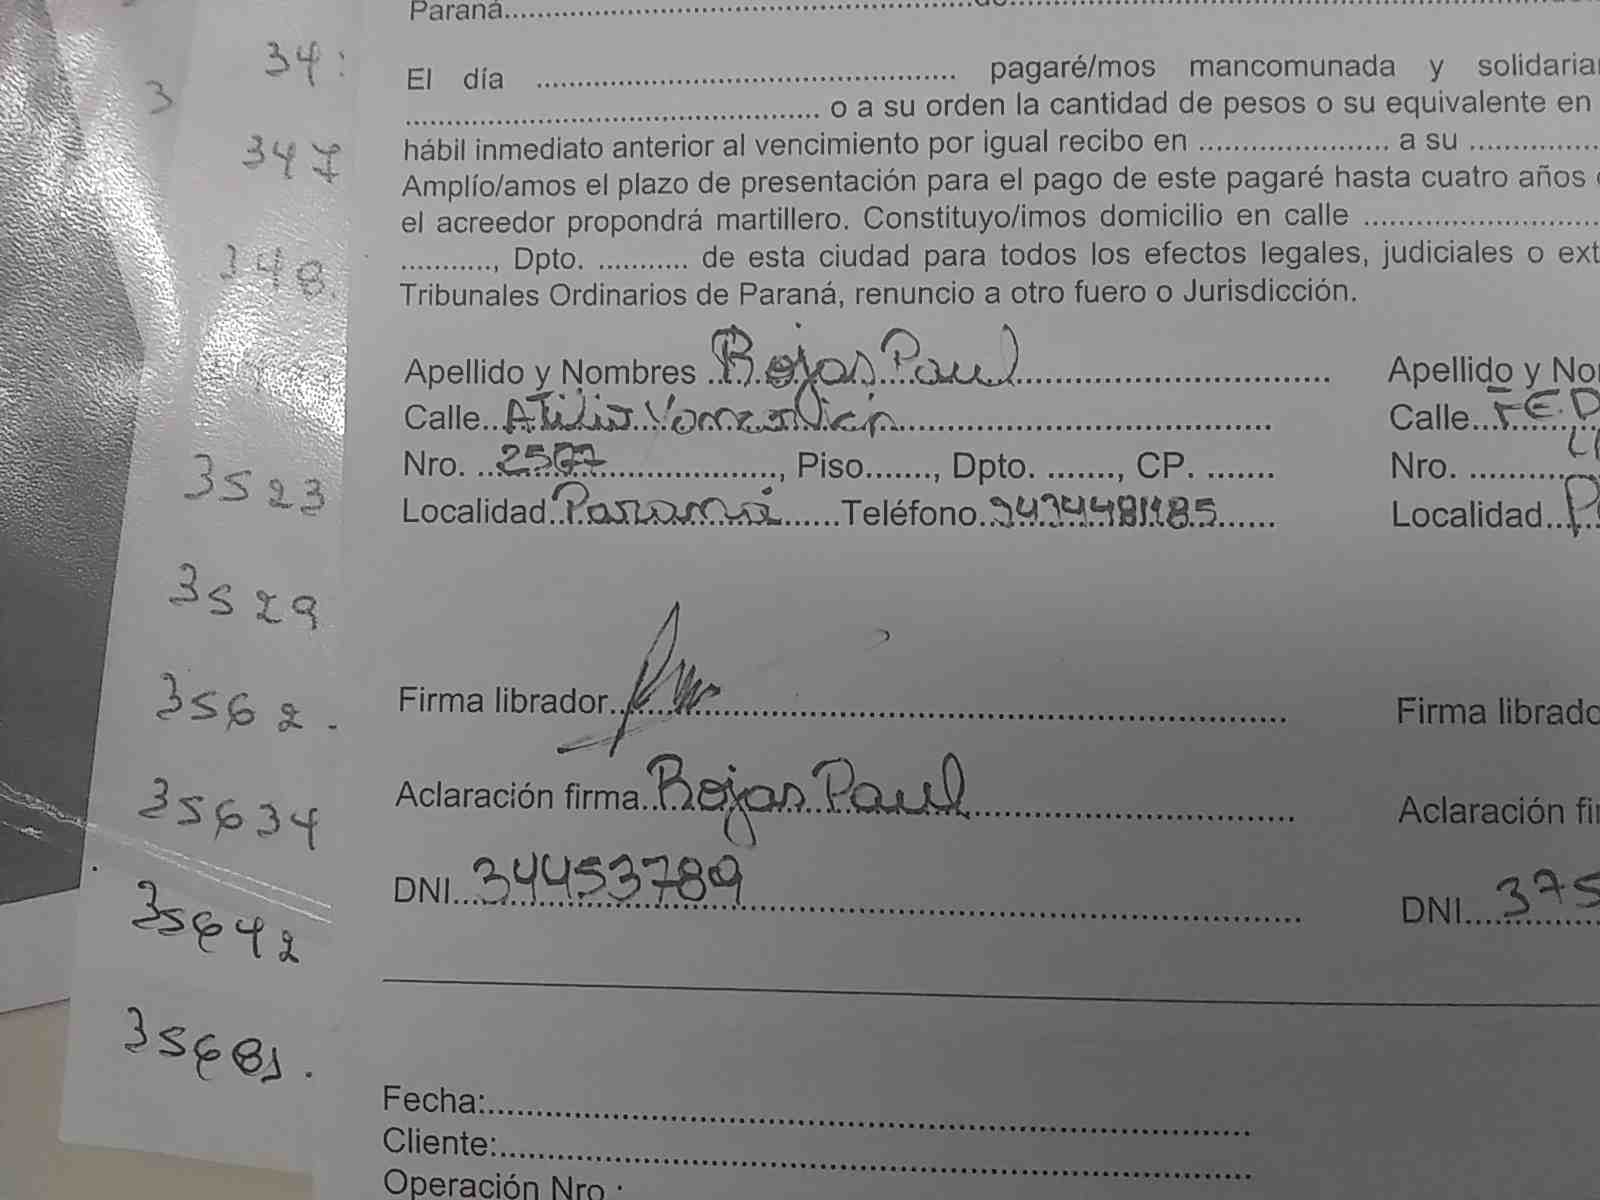 Paraná
34:
3
El día ........ pagaré/mos mancomunada y
........ o a su orden la cantidad de pesos o su equivalente en
347
hábil inmediato anterior al vencimiento por igual recibo en ........ a su ........
Amplío/amos el plazo de presentación para el pago de este pagaré hasta cuatro años
el acreedor propondrá martillero. Constituyo/imos domicilio en calle ........
........, Dpto. ........ de esta ciudad para todos los efectos legales, judiciales o
348.
Tribunales Ordinarios de Paraná, renuncio a otro fuero o Jurisdicción.
Apellido y Nombres Rojas Paul
Calle Atilio
Nro. ........, Piso......., Dpto. ......., CP. .......
Localidad Paraná Teléfono
Apellido y
Calle
Nro.
Localidad
3523
3529
3562.
35634
35642
35681.
Firma librador
Aclaración firma Rojas Paul
DNI 34453789
Firma
Aclaración
DNI 375
Fecha:
Cliente:
Operación Nro.: